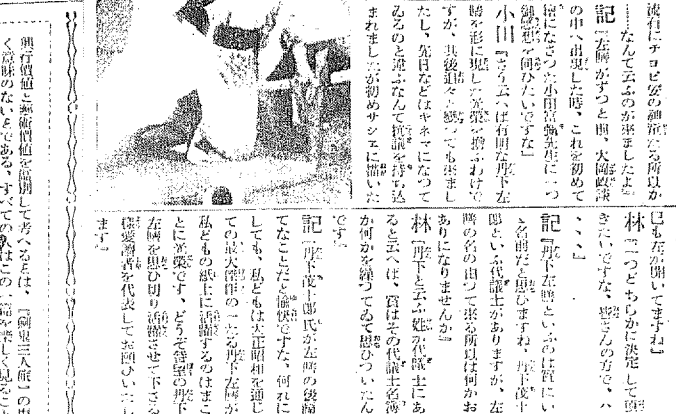 流石にチヨビ安の
……なんて云ふのが來ましたよ』
記『左膳がずつと前、大岡政談
の中へ出現した時、これを初めて
繪になさつた小田富彌先生に一つ
御感想を伺ひたいですな』
小田『さう云へば有明な丹下左
膳を形に現した光榮を擔ふわけで
すが、其後追々と變つても來まし
たし、先日などはキネマになつて
ゐるのと違ふなんて抗議を持ち込
まれましたが初めサシエに描いた
も左が開いてますね』
林『二つどちらかに決定して頂
きたいですな、皆さんの方で、ハ
、、、』
記『丹下左膳といふのは實にい
ゝ名前だと思ひますね、丹下茂十
郎といふ代議士がありますが、左
膳の名の由つて來る所以は何かお
ありになりませんか』
林『丹下と云ふ姓が代議士にあ
ると云へば、實はその代議士名簿
か何かを繰つてゐて思ひついたん
です』
記『丹下茂十郎氏が左膳の後
てなことだと愉快ですな、何れに
しても、私どもは大正昭和を通じ
ての最大傑作の一たる丹下左膳が
私どもの紙上に活躍するのはまこ
とに光榮です、どうぞ待望の丹下
左膳を思ひ切り活躍させて下さる
樣愛讀者を代表してお願ひいたし
ます』
興行價値と藝術價値を區別して考へるとは、『劍鬼三人旅』の
く意味のないことである、すべての人はこの一篇を樂しく見ること